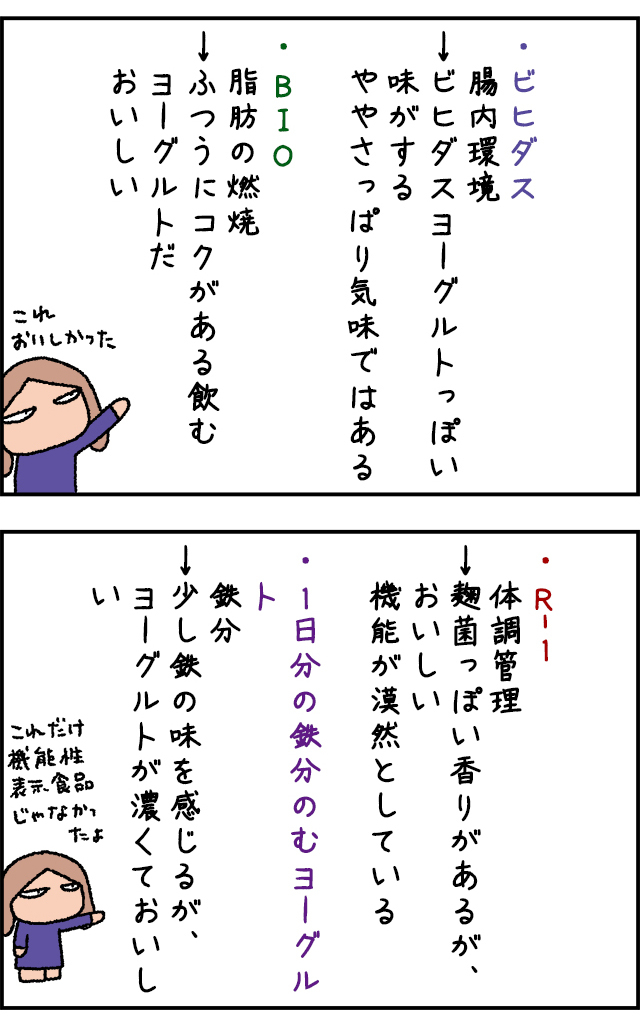 ・ビヒダス
腸内環境
↓ビヒダスヨーグルトっぽい
味がする
ややさっぱり気味ではある
・BIO
脂肪の燃焼
↓ふつうにコクがある飲む
ヨーグルトだ
おいしい
これ
おいしかった
・R-1
体調管理
↓麹菌っぽい香りがあるが、
おいしい
機能が漠然としている
・1日分の鉄分のむヨーグル
ト
鉄分
↓少し鉄の味を感じるが、
ヨーグルトが濃くておいし
い
これだけ
機能性
表示食品
じゃなかっ
たよ